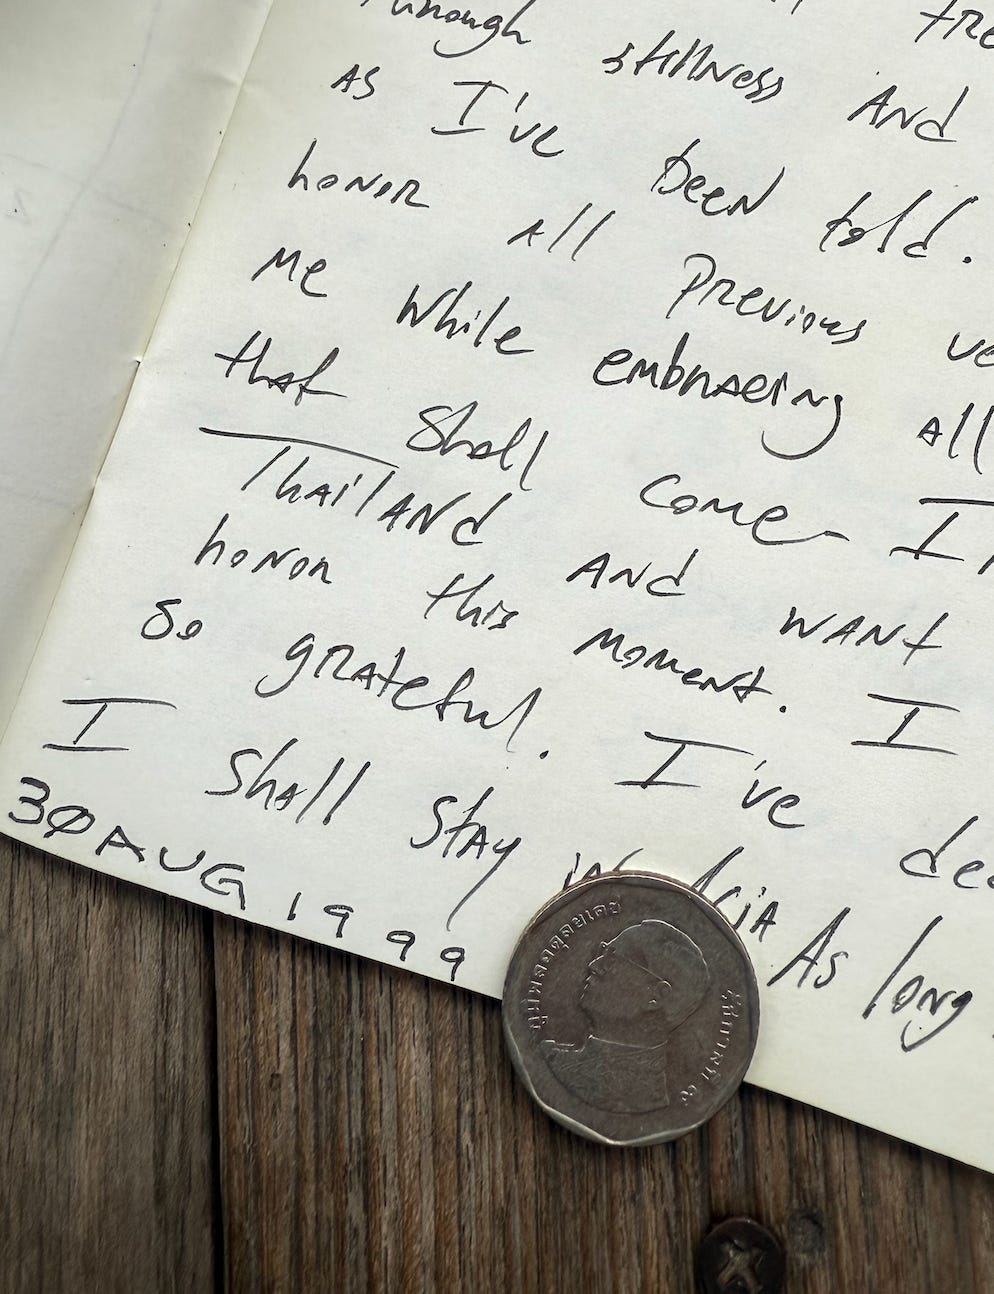 through stillness And
As I've been told.
honor All Previous
Me While embracing All
that Shall Come- I
Thailand And WANt
honor this Moment. I
So grateful. I've
I Shall Stay in Asia As long
30 AUG 1999
ภูมิพลอดุลยเดช
รัชกาลที่ ๙